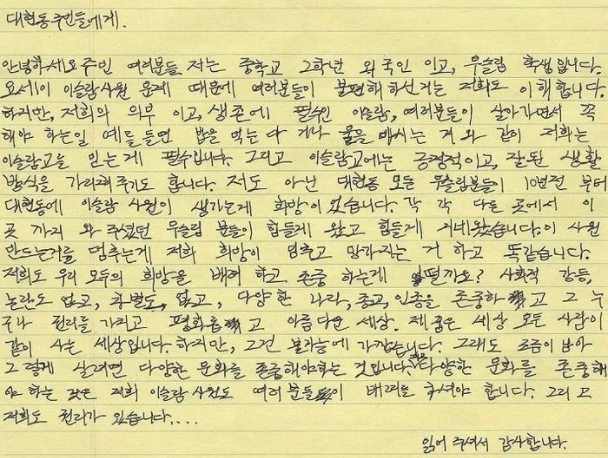 대현동 주민들에게.
안녕하세요 주민 여러분들 저는 중학교 2학년 외국인 이고, 무슬림 학생입니다.
요세이 이슬람사원 문제 때문에 여러분들이 불편해 하신거는 저희도 이해합니다.
하지만, 저희의 의무 이고, 생존에 필수인 이슬람, 여러분들이 살아가면서 꼭
해야 하는일 예들들면 밥을 먹는 다 거나 물을 마시는 거 와 같이 저희는
이슬람교을 믿는게 필수입니다. 그리고 이슬람교에는 긍정적이고, 잘된 생활
방식을 가리쳐주기도 합니다. 저도 아닌 대현동 모든 무슬림분들이 10년전 부터
대현동에 이슬람 사원이 생기는게 희망이었습니다. 각 각 다를 곳에서 이
곳 까지 와 주셨던 무슬림 분들이 힘들게 왔고 힘들게 지내왔습니다. 이 사원
만드는거를 멈추는게 저희 희망이 멈추고 망가지는 거 하고 똑같습니다.
저희도 우리 모두의 희망을 배려 하고 존중 하는게 어떨까요? 사회적 갈등,
논란도 없고, 차별도, 없고, 다양한 나라, 종교, 인종을 존중하고 그 누
구나 권리를 가지고 평화롭고 아름다운 세상. 제 꿈은 세상 모든 사람이
같이 사는 세상입니다. 하지만, 그건 불가능에 가깝습니다. 그래도 조금이 남아
그렇게 살려면 다양한 문화를 존중해야하는 것입니다. 다양한 문화를 존중해
야 하는 것은 저희 이슬람사원도 여러분들이 배려를 하셔야 합니다. 그리고
저희도 권리가 있습니다....
읽어 주셔서 감사합니다.